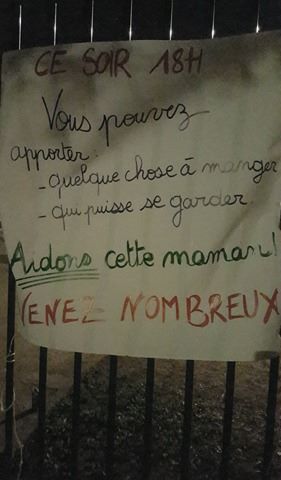 CE SOIR 18H
Vous pouvez
apporter :
- quelque chose à manger
- qui puisse se garder.
Aidons cette maman !
VENEZ NOMBREUX